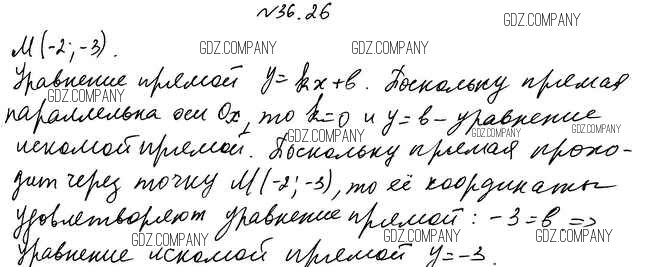 №36.26
GDZ.COMPANY
M(-2; -3). GDZ.COMPANY GDZ.COMPANY
Уравнение прямой y = kx + b. Поскольку прямая
GDZ.COMPANY
параллельна оси Ox, то k=0 и y = b – уравнение
GDZ.COMPANY GDZ.COMPANY GDZ.COMPANY
искомой прямой. Поскольку прямая прохо-
дит через точку M(-2; -3), то её координаты
удовлетворяют уравнение прямой: -3 = b =>
GDZ.COMPANY GDZ.COMPANY GDZ.COMPANY
уравнение искомой прямой y = -3.